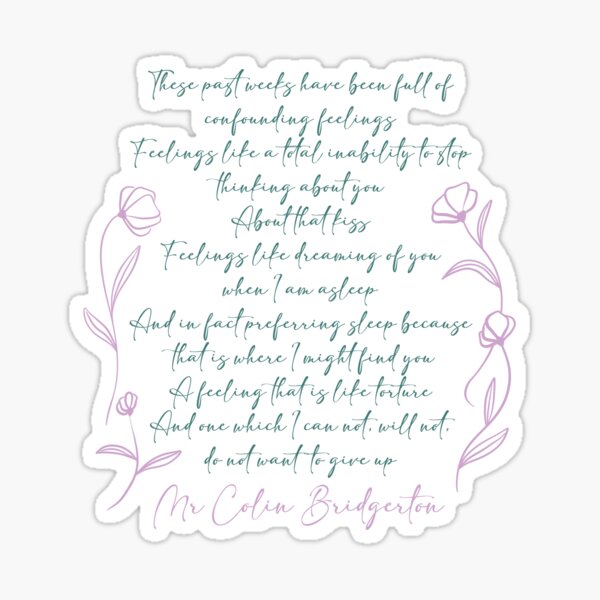 These past weeks have been full of
confounding feelings
Feelings like a total inability to stop
thinking about you
About that kiss
Feelings like dreaming of you
when I am asleep
And in fact preferring sleep because
that is where I might find you
A feeling that is like torture
And one which I can not, will not,
do not want to give up
Mr Colin Bridgerton